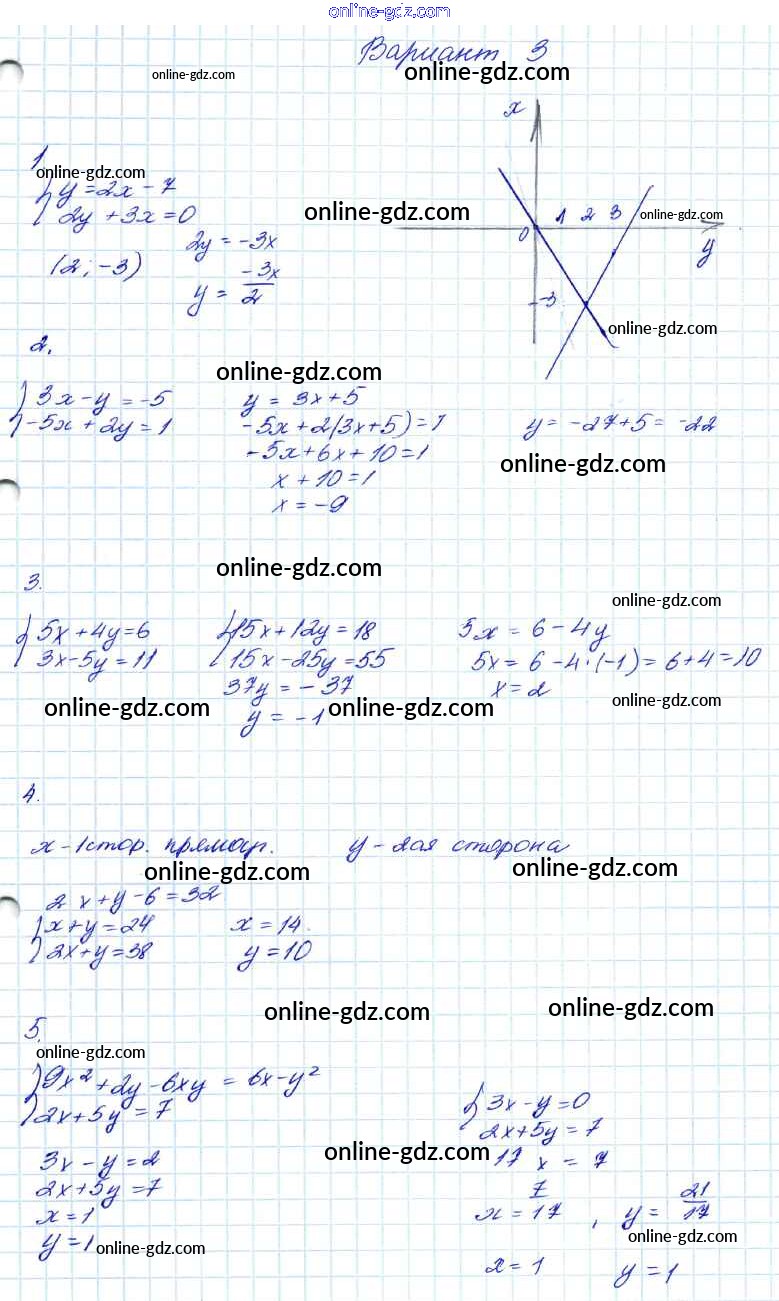 online-gdz.com
Вариант 3
online-gdz.com online-gdz.com
x
1.
online-gdz.com
y = 2x - 7
2y + 3x = 0
online-gdz.com
0 1 2 3 online-gdz.com
y
(2; -3)
2y = -3x
y = -3x/2
-3
online-gdz.com
2.
online-gdz.com
3x - y = -5
-5x + 2y = 1
y = 3x + 5
-5x + 2(3x + 5) = 1
-5x + 6x + 10 = 1
x + 10 = 1
x = -9
y = -27 + 5 = -22
online-gdz.com
3.
online-gdz.com
online-gdz.com
5x + 4y = 6
3x - 5y = 11
15x + 12y = 18
15x - 25y = 55
37y = -37
y = -1
5x = 6 - 4y
5x = 6 - 4·(-1) = 6 + 4 = 10
x = 2
online-gdz.com online-gdz.com online-gdz.com
4.
x - 1 стор. прямоуг. y - 2ая сторона
online-gdz.com online-gdz.com
2x + y - 6 = 32
x + y = 24
2x + y = 38
x = 14.
y = 10
online-gdz.com online-gdz.com
5.
online-gdz.com
9x² + 2y - 6xy = 6x - y²
2x + 5y = 7
3x - y = 2
2x + 5y = 7
x = 1
y = 1 online-gdz.com
online-gdz.com
3x - y = 0
2x + 5y = 7
17x = 7
x = 7/17, y = 21/17
online-gdz.com
x = 1 y = 1